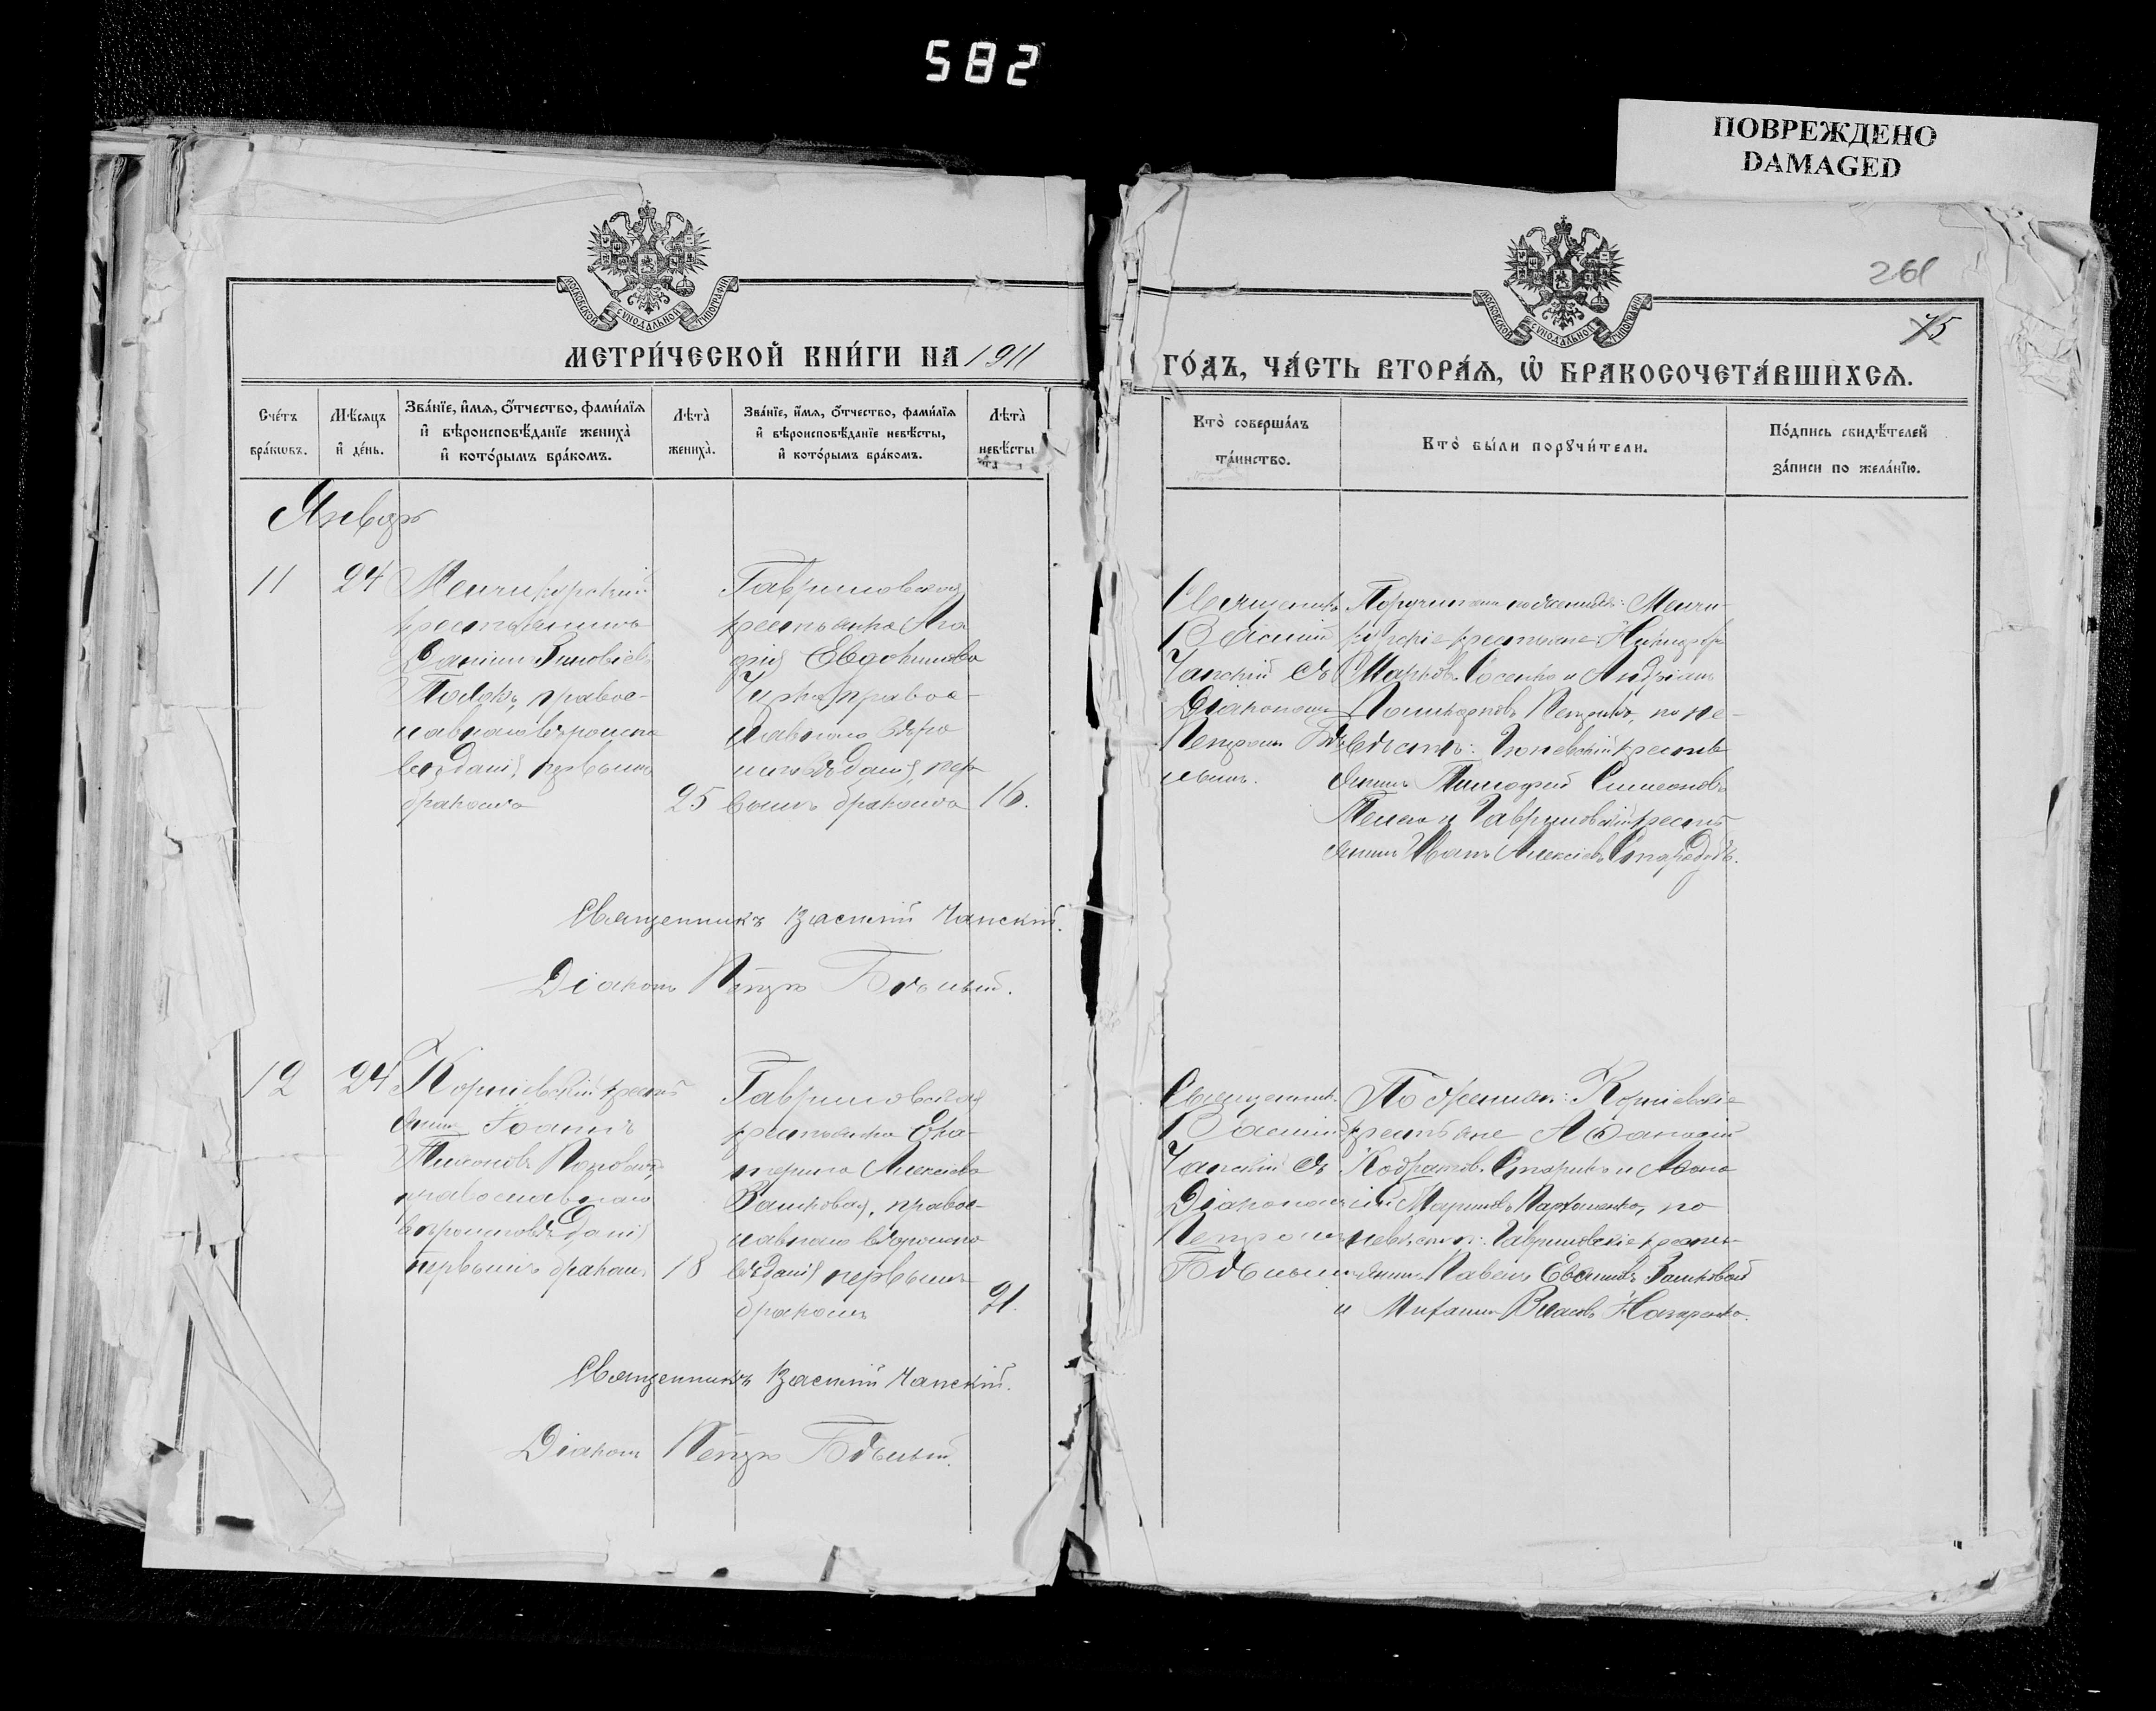 582
ПОВРЕЖДЕНО
DAMAGED
261
75
МОСКОВСКОЙ СѴНОДАЛЬНОЙ ТИПОГРАФІИ
МОСКОВСКОЙ СѴНОДАЛЬНОЙ ТИПОГРАФІИ
МЕТРИ́ЧЕСКОЙ КНИ́ГИ НА 1911
ГО́ДЪ, ЧА́СТЬ ВТОРА́Ѧ, Ѽ БРАКОСОЧЕТА́ВШИХСѦ.
Сче́тъ
бра́кѡвъ.
Мѣ́сяцъ
и҆ де́нь.
Зва́нїе, и҆́мѧ, ѻ҆́тчество, фами́лїѧ
и҆ вѣроисповѣ́данїе жениха̀
и҆ кото́рымъ бра́комъ.
Лѣта̀
жениха̀.
Зва́нїе, и҆́мѧ, ѻ҆́тчество, фами́лїѧ
и҆ вѣроисповѣ́данїе невѣ́сты,
и҆ кото́рымъ бра́комъ.
Лѣта̀
невѣ́сты.
Кто̀ соверша́лъ
та́инство.
Кто̀ бы́ли порꙋчи́тели.
По́дпись свидѣ́телей
за́писи по жела́нїю.
Январь
11
24
крестьянинъ
Даніилъ Зиновіевъ
православнаго вѣроиспо
вѣданія, первымъ
бракомъ
25
Гавриловская
крестьянка Ма
рія Евдокимова
православнаго вѣро
исповѣданія, пер
вымъ бракомъ
16.
Священникъ
Василій
Чапскій съ
Діакономъ
Петромъ Бѣ
лымъ.
Поручители по женихѣ:
крестьяне Никифоръ
Марковъ и Андріанъ
по не-
вѣстѣ: крестья
янинъ Тимофей Симеоновъ
и Гавриловскій крестья
янинъ Иванъ Алексіевъ Стародубъ.
Священникъ Василій Чапскій.
Діаконъ Петръ Бѣлый.
12
24
Корніевскій крестья
янинъ Іоаннъ
Тихоновъ
православнаго
вѣроисповѣданія
первымъ бракомъ
18
Гавриловская
крестьянка Ека-
терина Алексіева
Зашковая, правос-
лавнаго вѣроиспо
вѣданія первымъ
бракомъ
21.
Священникъ
Василій
Чапскій съ
Діакономъ
Петромъ
Бѣлымъ
По женихѣ: Корніевскіе
крестьяне Аѳанасій
Кодратовъ и Аѳана
сій Мартиновъ Пархоменко, по
невѣстѣ: Гавриловскіе крестья-
яне Павелъ Зашковой
и Михаилъ Власовъ Назаренко.
Священникъ Василій Чапскій.
Діаконъ Петръ Бѣлый.